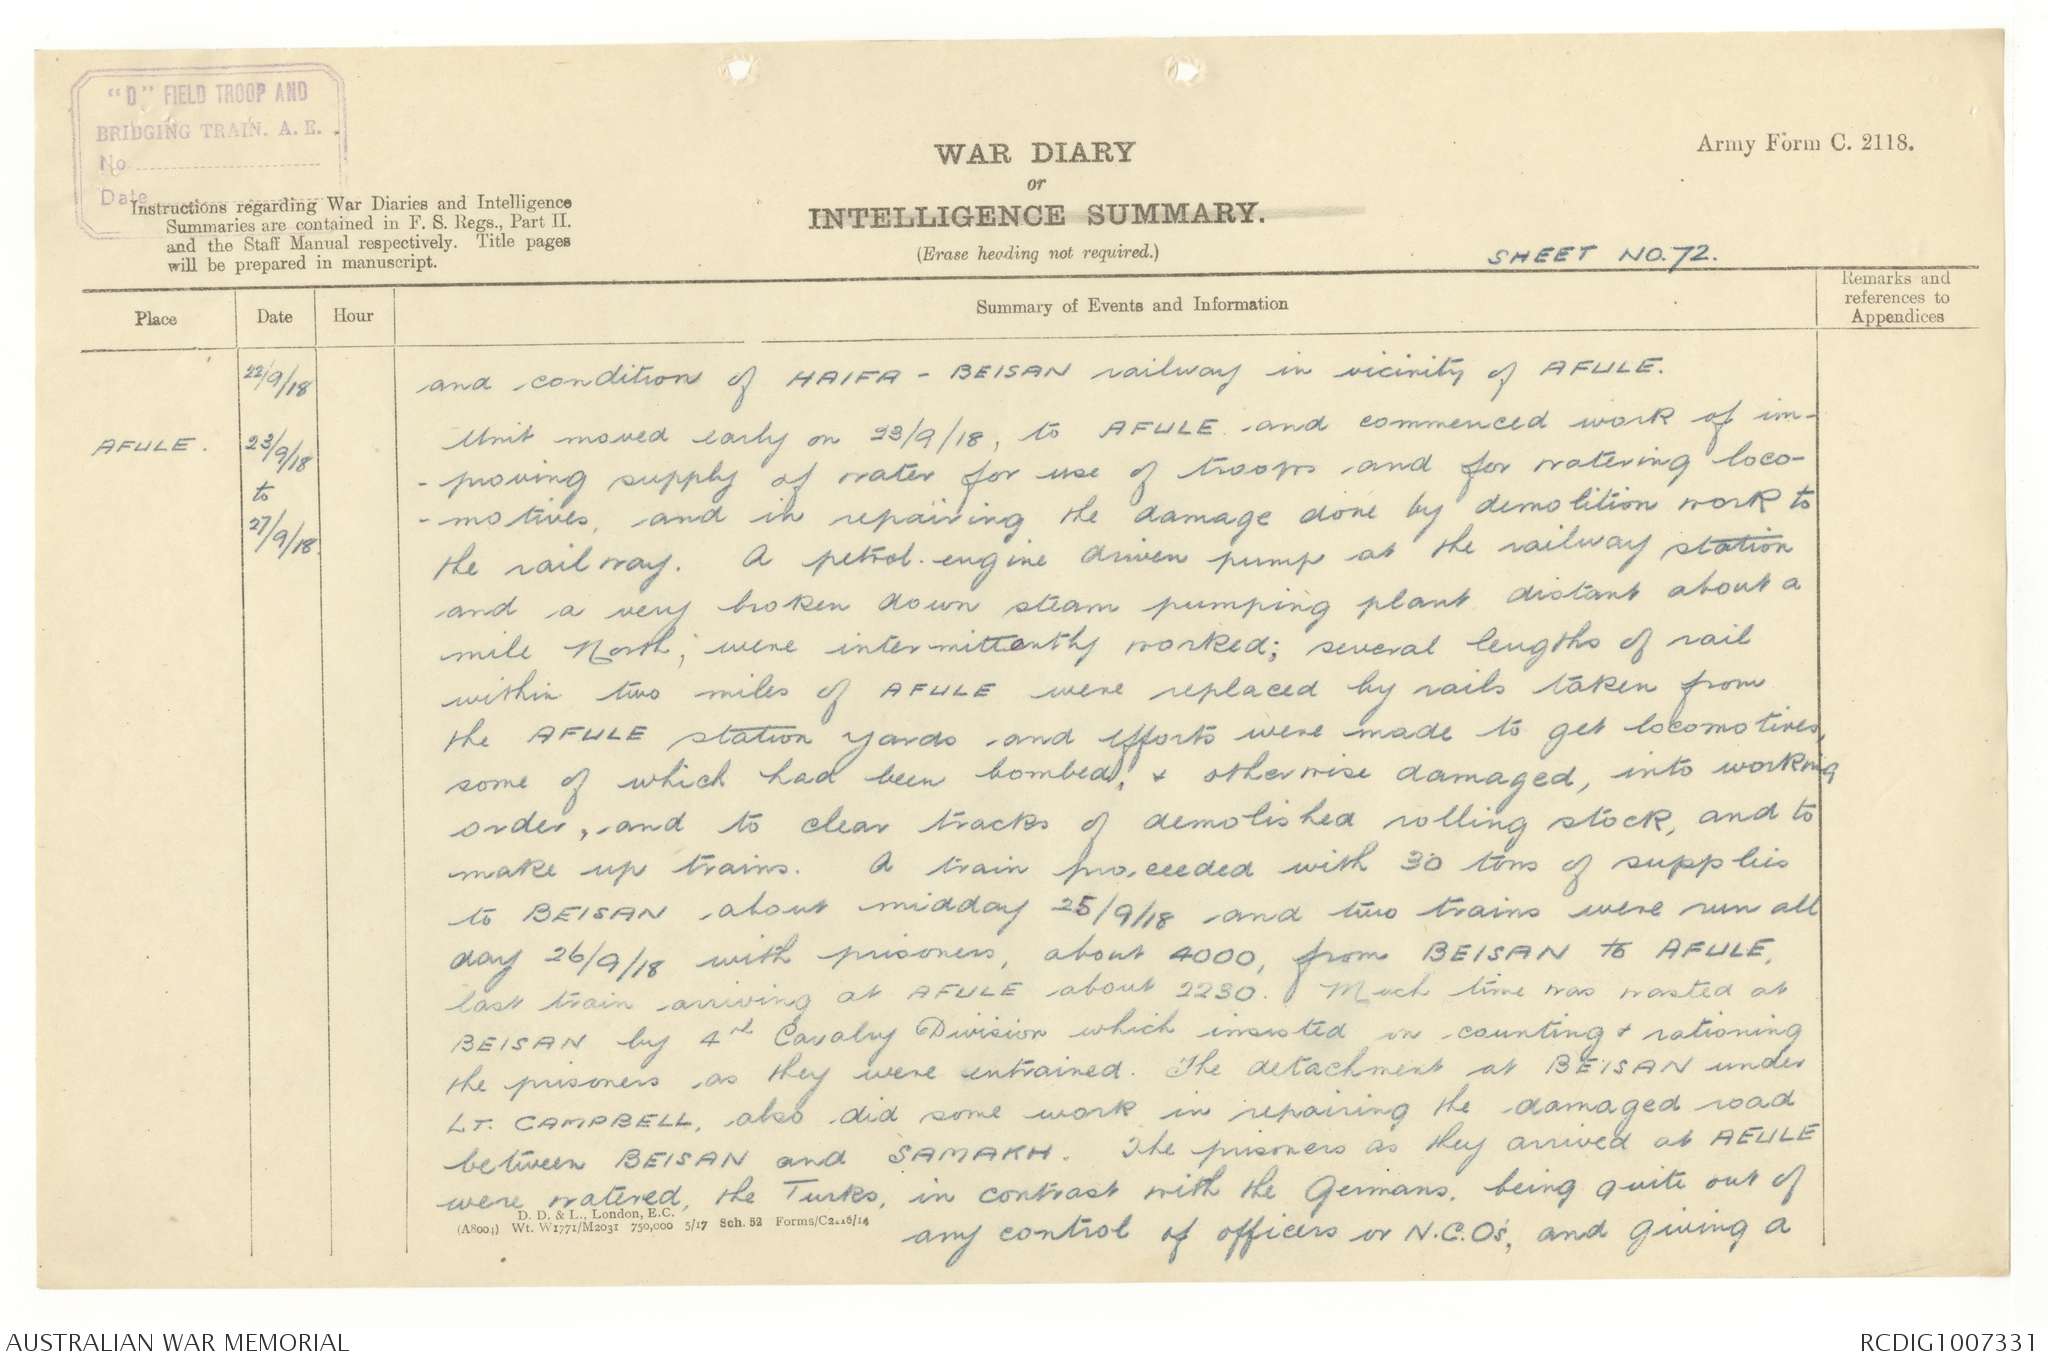 "D" FIELD TROOP AND
BRIDGING TRAIN. A. E.
No
Date
Instructions regarding War Diaries and Intelligence
Summaries are contained in F. S. Regs., Part II.
and the Staff Manual respectively. Title pages
will be prepared in manuscript.
WAR DIARY
or
INTELLIGENCE SUMMARY.
(Erase heading not required.)
Army Form C. 2118.
SHEET NO. 72.
Place
Date
Hour
Summary of Events and Information
Remarks and
references to
Appendices
22/9/18
and condition of HAIFA - BEISAN railway in vicinity of AFULE.
AFULE.
23/9/18
to
27/9/18.
Unit moved early on 23/9/18, to AFULE and commenced work of im-
- proving supply of water for use of troops and for watering loco-
- motives, and in repairing the damage done by demolition work to
the railway. A petrol-engine driven pump at the railway station
and a very broken down steam pumping plant distant about a
mile North, were intermittently worked; several lengths of rail
within two miles of AFULE were replaced by rails taken from
the AFULE station yards and efforts were made to get locomotives,
some of which had been bombed, & otherwise damaged, into working
order, and to clear tracks of demolished rolling stock, and to
make up trains. A train proceeded with 30 tons of supplies
to BEISAN about midday 25/9/18 and two trains were run all
day 26/9/18 with prisoners, about 4000, from BEISAN to AFULE,
last train arriving at AFULE about 2230. Much time was wasted at
BEISAN by 4th Cavalry Division which insisted on counting & rationing
the prisoners as they were entrained. The detachment at BEISAN under
LT. CAMPBELL, also did some work in repairing the damaged road
between BEISAN and SAMAKH. The prisoners as they arrived at AFULE
were watered, the Turks, in contrast with the Germans, being quite out of
any control of officers or N.C.O's, and giving a
D. D. & L., London, E.C.
(A8004) Wt. W1771/M2031 750,000 5/17 Sch. 52 Forms/C2118/14
AUSTRALIAN WAR MEMORIAL
RCDIG1007331